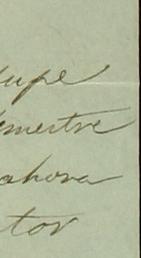 lupe
emestre
ahora
tor